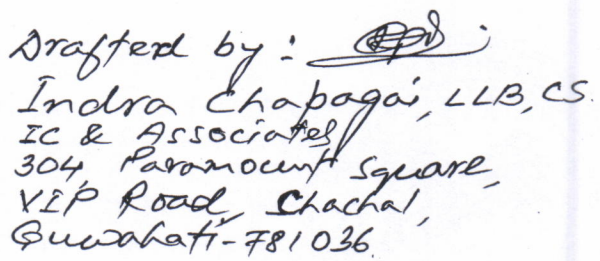 Drafted by:
Indra Chapagai, LLB, CS.
IC & Associates
304, Paramount Square,
VIP Road, Chachal,
Guwahati-781036